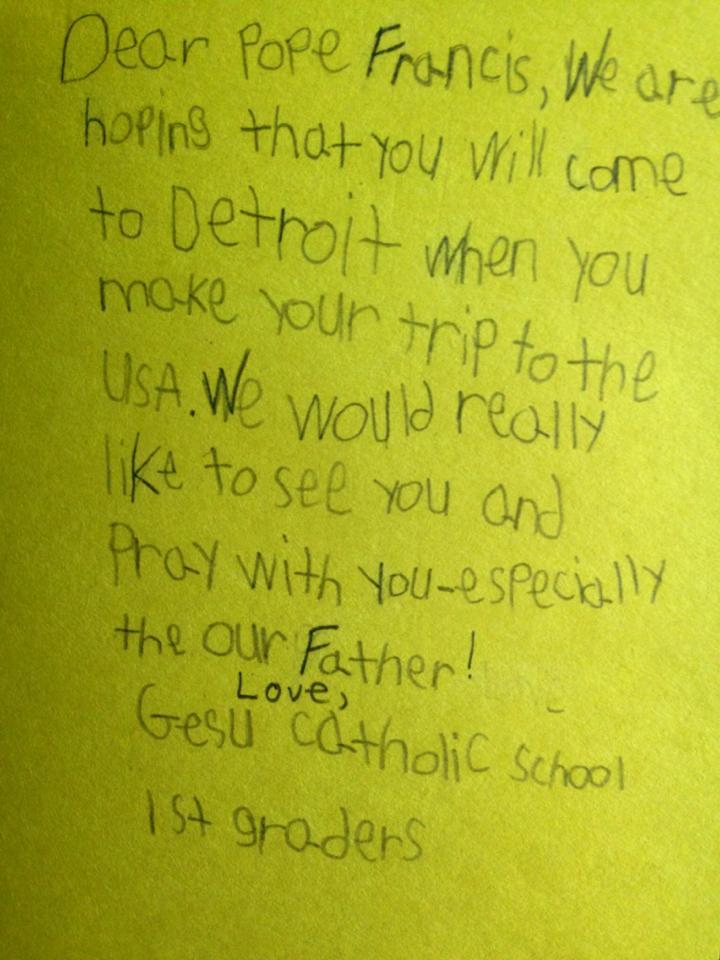 Dear Pope Francis, We are
hoping that you will come
to Detroit when you
make your trip to the
USA. We would really
like to see you and
Pray with you-especially
the our Father!
Love,
Gesu catholic school
1st graders